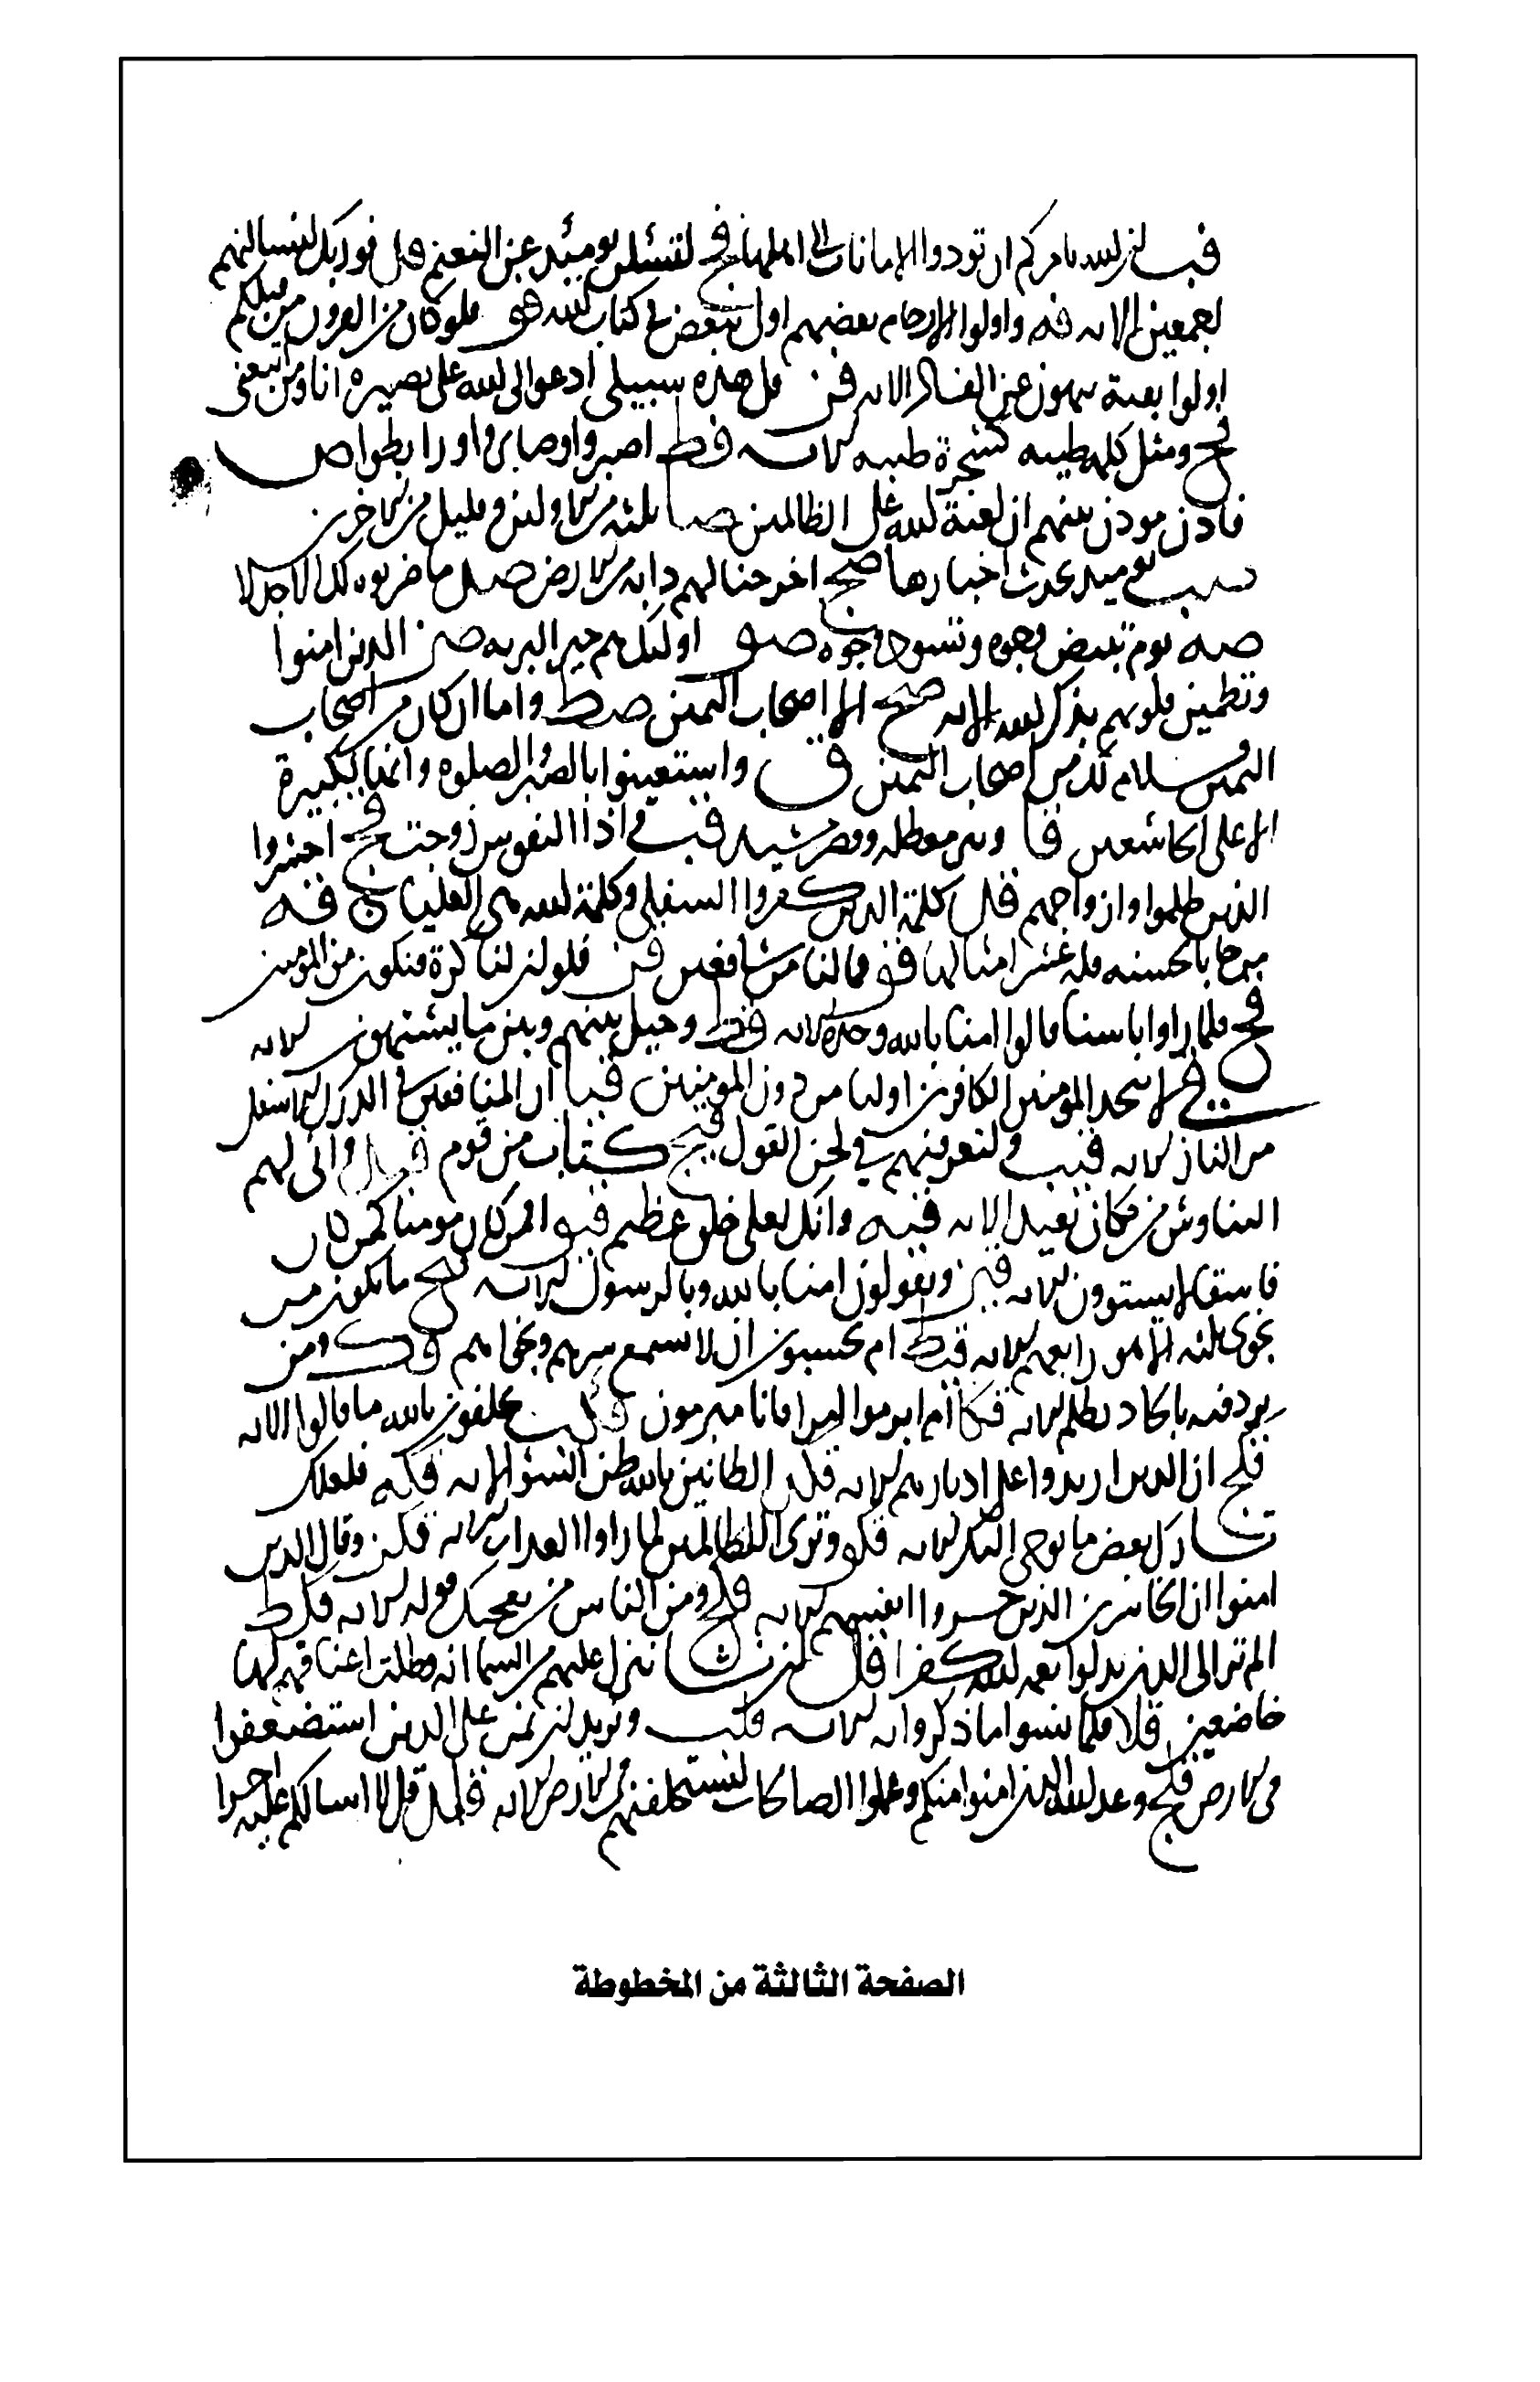 فب ان الله يامركم ان تودوا الامانات الى اهلها فج لتسئلن يومئذ عن النعيم فوربك لنسالنهم
اجمعين الايه فه واولوا الارحام بعضهم اولى ببعض في كتاب الله فلولا كان من القرون من قبلكم
اولوا بقية ينهون عن الفساد الايه فز قل هذه سبيلي ادعوا الى الله على بصيره انا ومن اتبعني
فح ومثل كلمه طيبه كشجرة طيبه الايه فط اصبروا وصابروا ورابطوا ص
فاذن موذن بينهم ان لعنة الله على الظالمين صا ثلثه من الاولين وقليل من الاخرين
صب يوميذ تحدث اخبارها صج اخرجنا لهم دابه من الارض ما ضربوه لك الا جدلا
صه يوم تبيض وجوه وتسود وجوه صو اوليك هم خير البريه صز الذين امنوا
وتطمين قلوبهم بذكر الله الايه صح الا اصحاب اليمين صط واما ان كان من اصحاب
اليمين فسلام لك من اصحاب اليمين ق واستعينوا بالصبر والصلوه وانها لكبيرة
الا على الخاشعين قا وبير معطله وقصر مشيد قب واذا النفوس زوجت قج احشروا
الذين ظلموا وازواجهم قد كلمة الذين كفروا السفلى وكلمة الله هي العليا قه
من جا بالحسنه فله عشر امثالها قو فما لنا من شافعين قز فلو ان لنا كرة فنكون من المومنين
قح فلما راوا باسنا قالوا امنا بالله وحده الايه قط وحيل بينهم وبين ما يشتهون الايه
قي لا يتخذ المومنون الكافرين اوليا من دون المومنين قيا ان المنافقين في الدرك الاسفل
من النار الايه قيب ولتعرفنهم في لحن القول قيج قيد واني لهم
التناوش من مكان بعيد الايه قيه وانك لعلى خلق عظيم قيو افمن كان مومنا كمن كان
فاسقا لا يستوون الايه قيز ويقولون امنا بالله وبالرسول الايه قيح ما يكون من
نجوى ثلثه الا هو رابعهم الايه قيط ام يحسبون ان لا نسمع سرهم ونجواهم قك ومن
يرد فيه بالحاد بظلم الايه قكا ام ابرموا امرا فانا مبرمون قكب يحلفون بالله ما قالوا الايه
قكج ان الذين ارتدوا على ادبارهم الايه قكد الظانين بالله ظن السوء الايه قكه فلعلك
تارك بعض ما يوحى اليك الايه قكو وترى الظالمين لما راوا العذاب الايه قكز وقال الذين
امنوا ان الخاسرين الذين خسروا انفسهم الايه قكح ومن الناس من يعجبك قوله الايه قكط
الم تر الى الذين بدلوا نعمه الله كفرا قل ان نشا ننزل عليهم من السما ايه فظلت اعناقهم لها
خاضعين قلا فلما نسوا ما ذكروا به الايه قلب ونريد ان نمن على الذين استضعفوا
في الارض قلج وعد الله الذين امنوا منكم وعملوا الصالحات ليستخلفنهم في الارض الايه قلد قل لا اسالكم عليه اجرا
الصفحة الثالثة من المخطوطة